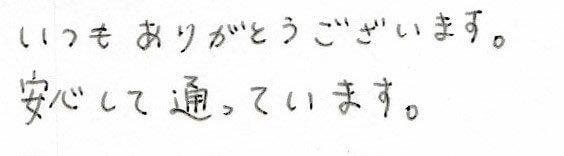 いつもありがとうございます。
安心して通っています。